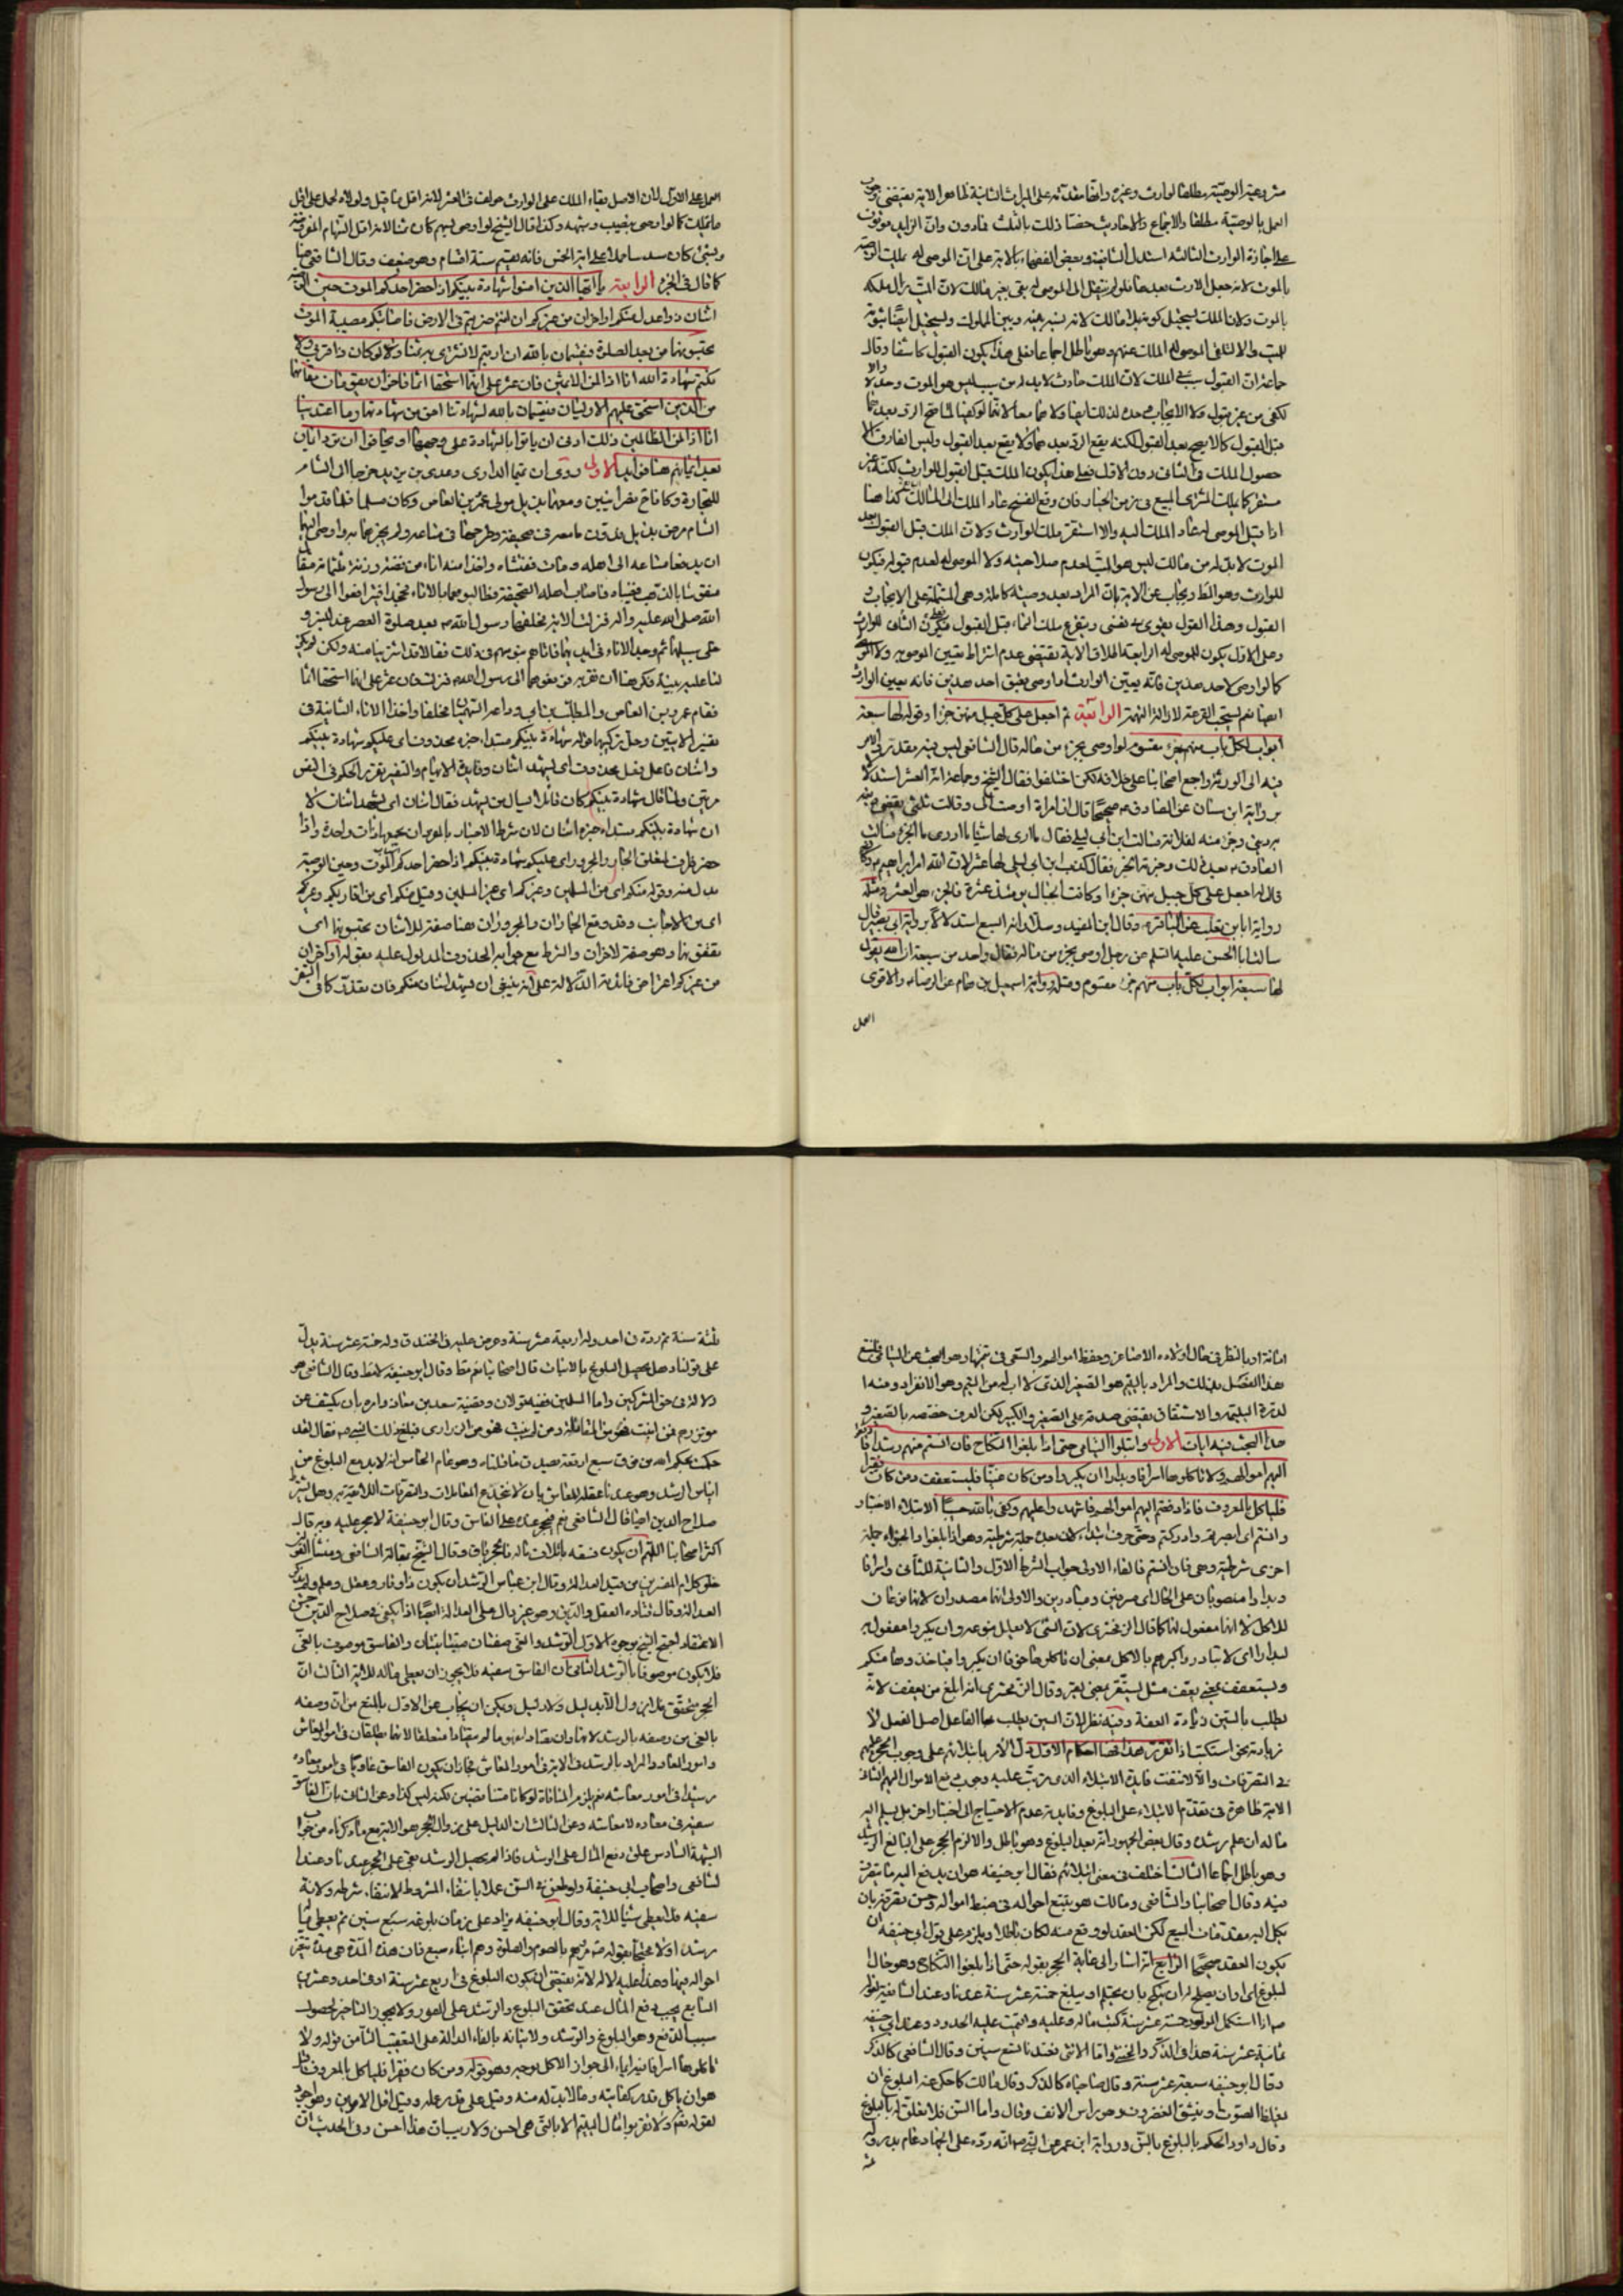 مشروعية الوصية مطلقا لوارث وغيره وانها مقدمة على الميراث الثانية ظاهر الاية يقتضي وجوب
العمل بالوصية مطلقا والاجماع والاحاديث خصتا ذلك بالثلث فما دون وان الزايد موقوف
على اجازة الوارث الثالثة استدل الشافعية وبعض الفقهاء بالاية على ان الموصى له يملك الوصية
بالموت لانه جعل الارث بعدها فلو لم ينتقل الى الموصى له بقي بغير مالك لان الميت زال ملكه
بالموت ولان الملك يستحيل كونه بلا مالك لانه نسبة بينه وبين المملوك ويستحيل ايضا ثبوته
للميت والا لتلقى الموصى له الملك عنهم وهو باطل اجماعا فعلى هذا يكون القبول كاشفا وقال
جماعة ان القبول سبب في الملك لان الملك حادث لا بد له من سبب ليس هو الموت وحده والا
لكفى من غير قبول ولا الايجاب وحده لذلك ايضا ولا هما معا لانهما لو كفيا لما صح الرد بعدهما
قبل القبول كما لا يصح بعد القبول لكنه يقع الرد بعدهما ولا يقع بعد القبول وليس الفارق الا
حصول الملك في الثاني دون الاول فعلى هذا يكون الملك قبل القبول للوارث لكنه غير
مستقر كما يملك المشتري المبيع في زمن الخيار فان وقع الفسخ عاد الملك الى المالك كذا هنا
اذا قبل الموصى له عاد الملك اليه والا استقر ملك الوارث ولان الملك قبل القبول بعد
الموت لا بد له من مالك ليس هو الميت لعدم صلاحيته ولا الموصى له لعدم قبوله فيكون
للوارث وهو المط ويجاب عن الاية بان المراد بعد وصية كاملة وهي المشتملة على الايجاب و
القبول وهذا القول يقوى به نفسي ويتفرع ملك النماء قبل القبول فيكون على الثاني للوارث
وعلى الاول يكون للموصى له الرابعة اطلاق الاية يقتضي عدم اشتراط تعيين الموصى به ولا الموصى له
كما لو اوصى لاحد هذين فانه يعين الوارث او اوصى بعتق احد عبدين فانه يعين الوارث
ايضا نعم يستحب القرعة لازالة التهمة الرابعة ثم اجعل على كل جبل منهن جزءا وقوله لها سبعة
ابواب لكل باب منهم جزء مقسوم لو اوصى بجزء من ماله قال الشافعي ليس فيه مقدر يرجع الامر
فيه الى الورثة واجمع اصحابنا على خلافه لكن اختلفوا فقال الشيخ وجماعة انه العشر استدلالا
برواية ابن سنان عن الصادق ع صحيحا قال ان امراة اوصت الي وقالت ثلثي يقضى منه
به ديني وجزء منه لفلانة فسالت ابن ابي ليلى فقال ما ارى لها شيئا ما ادري ما الجزء فسالت
الصادق ع بعد ذلك وخبرته الخبر فقال كذب ابن ابي ليلى لها عشر لان الله امر ابراهيم ع
قال له اجعل على كل جبل منهن جزءا وكانت الجبال يومئذ عشرة فالجزء هو العشر ومثله
رواية ابان بن تغلب عن الباقر ع وقال ابن الجنيد وسلار انه السبع استدلالا برواية ابي بصير قال
سالت ابا الحسن عليه السلم عن رجل اوصى بجزء من ماله فقال واحد من سبعة ان الله يقول
لها سبعة ابواب لكل باب منهم جزء مقسوم ومثله رواية اسمعيل بن همام عن الرضا ع والاقوى
العمل
العمل على الاول لان الاصل بقاء الملك على الوارث خولف في العشر لانه اقل ما قيل ولولاه لحمل على اقل
ما يملك كما لو اوصى بنصيب وشبهه وكذا قال الشيخ لو اوصى بسهم كان ثمنا لانه اقل السهام المفروضة
وبشئ كان سدسا حملا على اية الخمس فانه يقسم ستة اقسام وهو ضعيف وقال الشافعي هنا
كما قال في الجزء الرابعة يا ايها الذين امنوا شهادة بينكم اذا حضر احدكم الموت حين الوصية
اثنان ذوا عدل منكم او اخران من غيركم ان انتم ضربتم في الارض فاصابتكم مصيبة الموت
تحبسونهما من بعد الصلوة فيقسمان بالله ان ارتبتم لا نشتري به ثمنا ولو كان ذا قربى ولا
نكتم شهادة الله انا اذا لمن الاثمين فان عثر على انهما استحقا اثما فاخران يقومان مقامهما
من الذين استحق عليهم الاوليان فيقسمان بالله لشهادتنا احق من شهادتهما وما اعتدينا
انا اذا لمن الظالمين ذلك ادنى ان ياتوا بالشهادة على وجهها او يخافوا ان ترد ايمان
بعد ايمانهم هنا فوايد الاولى روي ان تميما الداري وعدي بن زيد خرجا الى الشام
للتجارة وكانا نصرانيين ومعهما بديل مولى عمرو بن العاص وكان مسلما فلما قدموا
الشام مرض بديل فدون ما معه في صحيفة وطرحها في متاعه ولم يخبرهما به واوصى اليهما
ان يدفعا متاعه الى اهله ومات ففتشاه واخذا منه اناء من فضة وزنه ثلثماة مثقال
منقوشا بالذهب فغيباه فاصاب اهله الصحيفة فطالبوهما بالاناء فجحدا فترافعوا الى رسول
الله صلى الله عليه واله فنزلت الاية فحلفهما رسول الله ص بعد صلوة العصر عند المنبر و
خلى سبيلهما ثم وجد الاناء في ايديهما فاتاهم بنو سهم في ذلك فقالا قد اشتريناه منه ولكن لم يكن
لنا عليه بينة فكرهنا ان نقر به فرفعوهما الى رسول الله ص فنزلت فان عثر على انهما استحقا اثما
فقام عمرو بن العاص والمطلب بن ابي وداعة السهميان فحلفا واخذا الاناء الثانية في
تفسير الايتين وحل تركيبهما قوله شهادة بينكم مبتدا خبره محذوف اي عليكم شهادة بينكم
واثنان فاعل فعل محذوف اي ليشهد اثنان وفايدة الابهام والتفسير تقرير الحكم في النفس
مرتين ولما قال شهادة بينكم كان قائلا سال من يشهد فقال اثنان اي يشهد اثنان لا
ان شهادة بينكم مبتدا وخبره اثنان لان شرط الاخبار بالمفرد ان يجمعهما ذات واحدة واذا
حضر ظرف لمتعلق الجار والمجرور اي عليكم شهادة بينكم اذا حضر احدكم اسباب الموت وحين الوصية
بدل منه وقوله منكم اي من المسلمين وغيركم اي غير المسلمين وقيل منكم اي من اقاربكم وغيركم
اي من الاجانب وقد وقع الجاران والمجروران هنا صفة للاثنان تحبسونهما اي
تقفونهما وهو صفة لاخران والشرط مع جوابه المحذوف المدلول عليه بقوله او اخران
من غيركم اعتراض فائدته الدلالة على انه ينبغي ان يشهد اثنان منكم فان تعذر كما في السفر
امانة او بالنظر في حال اولاده الاصاغر وحفظ اموالهم والسعي في تنميتها وهو البحث عن اليتامى فلنتبع
هذا الفصل بذلك والمراد باليتيم هو الصغير الذي لا اب له من اليتم وهو الانفراد ومنه
لدرة اليتيمة والاشتقاق يقتضي صدقه على الصغير والكبير لكن العرف خصصه بالصغير و
هذا البحث فيه ايات الاولى وابتلوا اليتامى حتى اذا بلغوا النكاح فان انستم منهم رشدا فادفعوا
اليهم اموالهم ولا تاكلوها اسرافا وبدارا ان يكبروا ومن كان غنيا فليستعفف ومن كان فقيرا
فلياكل بالمعروف فاذا دفعتم اليهم اموالهم فاشهدوا عليهم وكفى بالله حسيبا الابتلاء الاختبار
وانستم اي ابصرتم وادركتم وحتى حرف ابتداء لان بعده جملة شرطية وهو اذا بلغوا والجزاء جملة
اخرى شرطية وهي فان انستم فالفاء الاولى جواب الشرط الاول والثانية للثاني واسرافا
وبدارا منصوبان على الحال اي مسرفين ومبادرين والاولى انهما مصدران لانهما نوعان
للاكل لا انهما مفعول لهما كما قال الزمخشري لان الشئ لا يعلل بنوعه وان يكبروا مفعول به
لبدارا اي لا تبادروا كبرهم بالاكل بمعنى ان تاكلوها خوفا ان يكبروا فياخذوها منكم
وليستعفف بمعنى يعف مثل يستقر بمعنى يقر وقال الزمخشري انه ابلغ من يعف لانه
يطلب بالسين زيادة العفة وفيه نظر لان السين يطلب بها الفاعل اصل الفعل لا
زيادته نحو استكتب اذا تقرر هذا فهنا احكام الاول دل الامر بابتلائهم على وجوب الحجر عليهم
في التصرفات والا لانتفت فايدة الابتلاء الذي يترتب عليه وجوب دفع الاموال اليهم الثاني
الاية ظاهرة في تقدم الابتلاء على البلوغ وفايدته عدم الاحتياج الى اختبار اخر بل يسلم اليه
ماله ان علم رشده وقال بعض الجمهور انه بعد البلوغ وهو باطل والا لزم الحجر على البالغ الرشيد
وهو باطل اجماعا الثالث اختلف في معنى ابتلائهم فقال ابو حنيفة هو ان يدفع اليه ما يتصرف
فيه وقال اصحابنا والشافعي ومالك هو تتبع احواله في ضبط امواله وحسن تصرفه بان
يكل اليه مقدمات البيع لكن العقد لو وقع منه لكان باطلا ويلزم على قول ابي حنيفة ان
يكون العقد صحيحا الرابع انه اشار الى غاية الحجر بقوله حتى اذا بلغوا النكاح وهو حال
لبلوغ اي اوان يصلح له ان ينكح بان يحتلم او يبلغ خمسة عشر سنة عندنا وعند الشافعية لقوله
ص اذا استكمل المولود خمسة عشر سنة كتب ماله وعليه واقيمت عليه الحدود وعند ابي حنيفة
ثمانية عشر سنة هذا في الذكر والخنثى واما الانثى فعندنا تسع سنين وقال الشافعي كالذكر
وقال ابو حنيفة سبعة عشر سنة وقال صاحباه كالذكر وقال مالك كما حكي عنه البلوغ ان
يغلظ الصوت او ينشق الغضروف وهو راس الانف وقال واما السن فلا تعلق له بالبلوغ
وقال داود الحكم بالبلوغ بالسن ورواية ابن عمر عن النبي ص انه رده على الجهاد عام بدر وله
ثلثة سنة ثم رده في احد وله اربعة عشر سنة وعرض عليه في الخندق وله خمسة عشر سنة يدل
على قولنا وهل يحصل البلوغ بالانبات قال اصحابنا نعم مطلقا وقال ابو حنيفة لا مطلقا وقال الشافعي هو
دلالة في حق المشركين واما المسلمين ففيه قولان وقضية سعد بن معاذ وامره بان يكشف عن
مؤتزرهم فمن انبت فهو من المقاتلة ومن لم ينبت فهو من الذراري فبلغ ذلك النبي ص فقال لقد
حكمت بحكم الله من فوق سبع ارقعة يصدق ما قلناه وهو عام الخامس انه لا بد مع البلوغ من
ايناس الرشد وهو عندنا عقله للمعاش بان لا ينخدع في المعاملات والتصرفات اللائقة به وهل يشترط
صلاح الدين ايضا قال الشافعي نعم فيحجر عنده على الفاسق وقال ابو حنيفة لا يحجر عليه وبه قال
اكثر اصحابنا اللهم ان يكون فسقه باتلاف ماله فالحجر باق وقال الشيخ بمقالة الشافعي ومنشا القول
خلو كلام المفسرين من قيد العدالة وقال ابن عباس الرشد ان يكون ذا وقار وعقل وعلم ولم يذكر
العدالة وقال قتادة العقل والدين وهو غير دال على العدالة ايضا اذ يكفي في صلاح الدين حسن
الاعتقاد احتج الشيخ بوجوه الاول الرشد والغي صفتان متباينتان والفاسق موصوف بالغي
فلا يكون موصوفا بالرشد الثاني ان الفاسق سفيه فلا يجوز ان يعطى ماله للاية الثالث ان
الحجر متحقق فلا يزول الا بدليل ولا دليل ويمكن ان يجاب عن الاول بالمنع من ان وصفه
بالغي من وصفه بالرشد لانهما وان تضادا لغة مالم يتقيدا متعلقا لانهما يطلقان في امور المعاش
وامور المعاد والمراد بالرشد في الاية في امور المعاش فجاز ان يكون الفاسق غاويا في امور معاده
رشيدا في امور معاشه نعم يلزم المنافاة لو كانا متناقضين لكنه ليس كذا وعن الثاني بان الفاسق
سفيه في معاده لا معاشه وعن الثالث ان الدليل على زوال الحجر هو الاية مع ما ذكرناه من جواب
الشبهة السادس علق دفع المال على الرشد فاذا لم يحصل الرشد بقي على الحجر عندنا وعند
لشافعي واصحاب ابي حنيفة ولو طعن في السن عملا بانتفاء المشروط لانتفاء شرطه ولانه
سفيه فلا يعطى شيئا للاية وقال ابو حنيفة يزاد على زمان بلوغه سبع سنين ثم يعطى ماله
رشد او لا محتجا بقوله ص مروهم بالصوم والصلوة وهم ابناء سبع فان هذه المدة هي مدة تتغير
احواله فيها وهذا عليه لا له لانه يقتضي ان يكون البلوغ في اربع عشر سنة او في احد وعشرين
السابع يجب دفع المال عند تحقق البلوغ والرشد على الفور ولا يجوز التاخير لحصول
سبب الدفع وهو البلوغ والرشد ولاتيانه بالفاء الدالة على التعقيب الثامن قوله ولا
تاكلوها اسرافا فيه ايماء الى جواز الاكل بوجه وهو قوله ومن كان فقيرا فلياكل بالمعروف قيل
هو ان ياكل قدر كفايته وما لا بد له منه وقيل على قدر عمله وقيل اقل الامرين وهو اجود
لقوله تعالى ولا تقربوا مال اليتيم الا بالتي هي احسن ولا ريب ان هذا احسن وفي الحديث ان